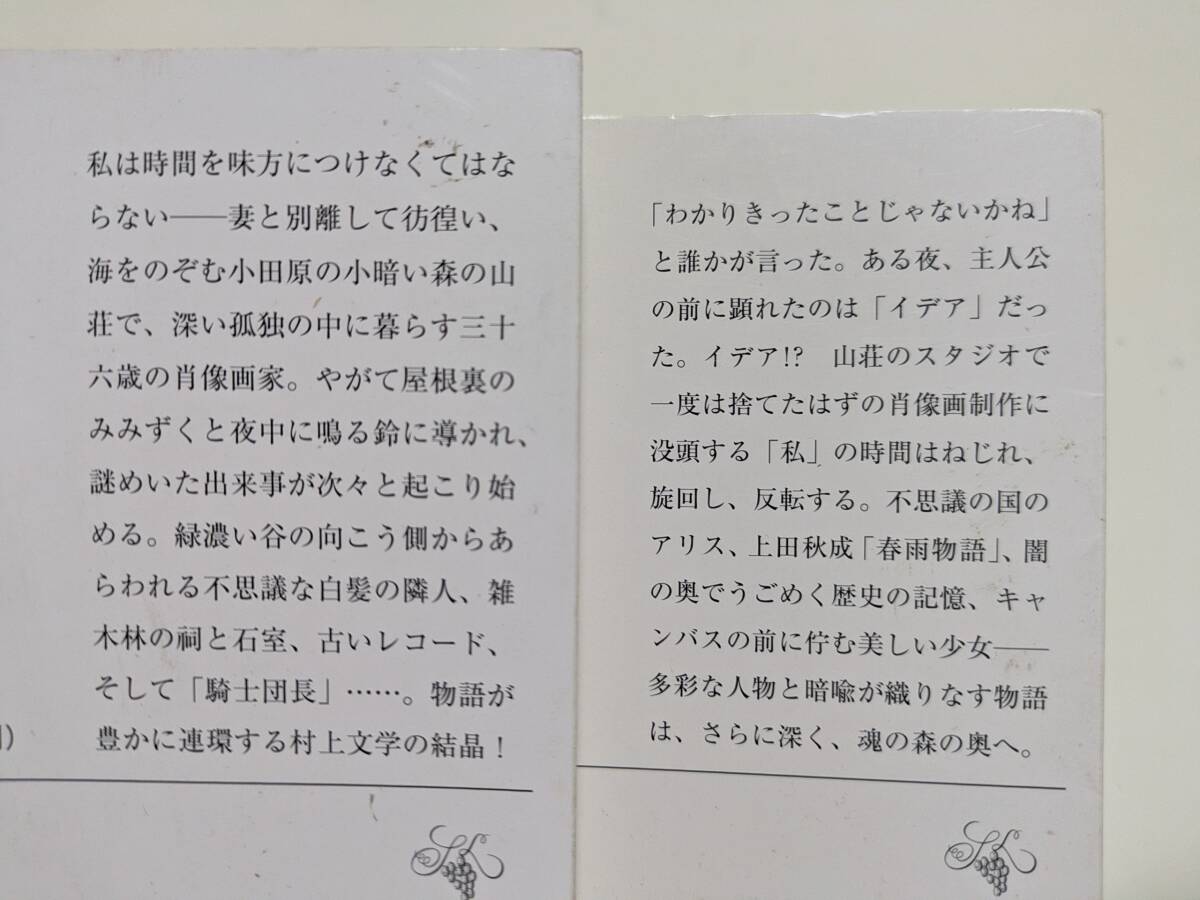 私は時間を味方につけなくてはな
らない――妻と別離して彷徨い、
海をのぞむ小田原の小暗い森の山
荘で、深い孤独の中に暮らす三十
六歳の肖像画家。やがて屋根裏の
みみずくと夜中に鳴る鈴に導かれ、
謎めいた出来事が次々と起こり始
める。緑濃い谷の向こう側からあ
らわれる不思議な白髪の隣人、雑
木林の祠と石室、古いレコード、
そして「騎士団長」……。物語が
豊かに連環する村上文学の結晶！
)
「わかりきったことじゃないかね」
と誰かが言った。ある夜、主人公
の前に顕れたのは「イデア」だっ
た。イデア!?　山荘のスタジオで
一度は捨てたはずの肖像画制作に
没頭する「私」の時間はねじれ、
旋回し、反転する。不思議の国の
アリス、上田秋成「春雨物語」、闇
の奥でうごめく歴史の記憶、キャ
ンバスの前に佇む美しい少女――
多彩な人物と暗喩が織りなす物語
は、さらに深く、魂の森の奥へ。